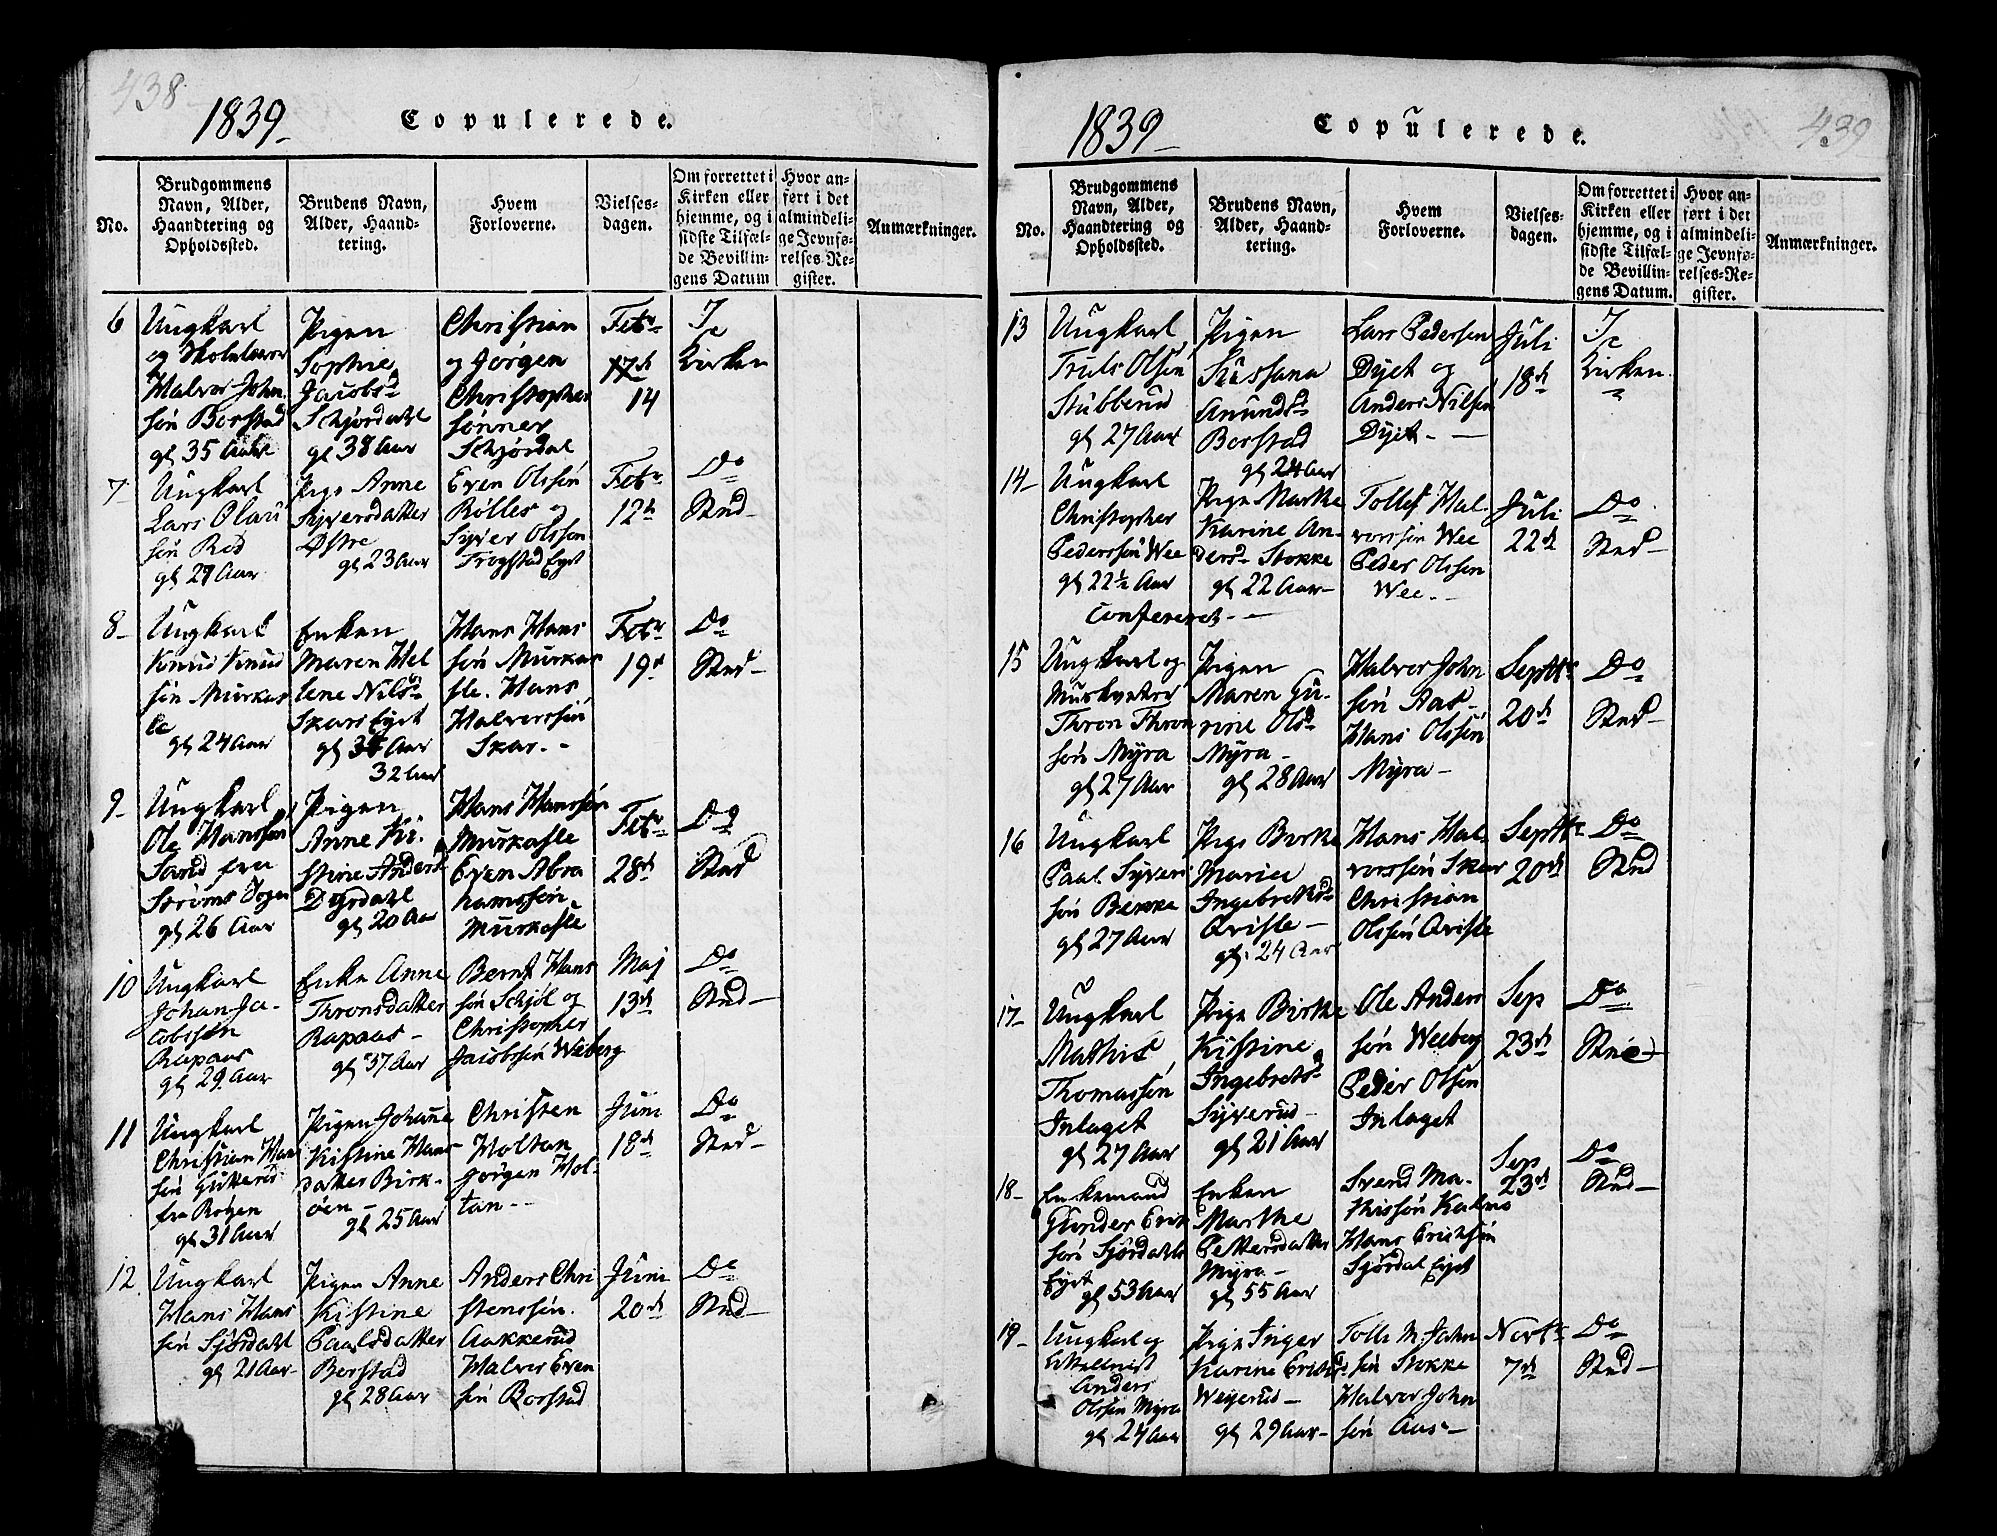 438
1839
Copulerede.
No.
Brudgommens
Navn, Alder,
Haandtering og
Opholdssted.
Brudens Navn,
Alder, Haand-
tering.
Hvem
Forloverne.
Vielses-
dagen.
Om forrettet i
Kirken eller
hjemme, og i
sidste Tilfæl-
de Bevillin-
gens Datum
Hvor an-
ført i det
almindeli-
ge Jevnfø-
relses-Re-
gister.
Anmærkninger.
6
Ungkarl
og
Halvor John
sön Borstad
gl 35 Aar
Pigen
Sophie
Jacobsd
Schjørdahl
gl 38 Aar
Christian
og Jørgen
Christopher
sønner
Schjørdal
Febr
17d
14
I
Kirken
7
Ungkarl
Lars Olau
sön Rød
gl 29 Aar
Pige Anne
Syversdatter
Østre
gl 23 Aar
Even Olssön
Røller og
Syver Olssøn
Frogstad Eyet
Febr
12
Do
Sted
8
Ungkarl
Knud Knud
sön Murkas
le
gl 24 Aar
Enken
Maren Hel
lene Nilsd
Skars Eyet
gl
32 Aar
Hans Hans
sön Murkas
sle. Hans
Halvorssön
Skar.
Febr
19
Do
Sted
9
Ungkarl
Ole Hanssen
Sand fra
Strøms Sogn
gl 26 Aar
Pigen
Anne Ki
stine Andersd
Dyrdahl
gl 20 Aar
Hans Hanssön
Murkasle
Even Abra
hamssön
Murkasle
Febr
28d
Do
Sted
10
Ungkarl
Johan Ja-
cobssen
Rapaas
gl 29 Aar
Enke Anne
Thronsdatter
Rapaas
gl 37 Aar
Bernt Hans
sön Schjøl og
Christopher
Jacobssön Wieberg
Maj
13d
Do
Sted
11
Ungkarl
Christian Hans
sön Gutterud
fra Røgen
gl 31 Aar
Pigen Johane
Kistine Hans
datter Birk-
öen
gl 25 Aar
Christen
Holtan
Jørgen Hol-
tan
Juni
18d
Do
Sted
12
Ungkarl
Hans Hans
sön Sjørdahl
gl 21 Aar
Pigen Anne
Kistine
Paalsdatter
Borstad
gl 28 Aar
Anders Chri
stenssön.
Aakkerud
Halvor Even
sön Borstad
Juni
20d
Do
Sted
439
1839
Copulerede.
No.
Brudgommens
Navn, Alder,
Haandtering og
Opholdssted.
Brudens Navn,
Alder, Haand-
tering.
Hvem
Forloverne.
Vielses-
dagen.
Om forrettet i
Kirken eller
hjemme, og i
sidste Tilfæl-
de Bevillin-
gens Datum.
Hvor an-
ført i det
almindeli-
ge Jevnfø-
relses-Re-
gister.
Anmærkninger.
13
Ungkarl
Truls Olsön
Stubberud
gl 27 Aar
Pigen
Sussana
Anundsd
Borstad
gl 24 Aar
Lars Pedersen
Dyet og
Anders Nilsön
Dyet
Juli
18d
I
Kirken
14
Ungkarl
Christopher
Pederssön Wee
gl 22½ Aar
Confereret
Pige Marthe
Karine An-
dersd Stokke
gl 22 Aar
Tollef Hal-
vorssön Wee
Peder Olssön
Wee
Juli
22d
Do
Sted
15
Ungkarl og
Muskveter
Thron Thron
sön Myra
gl 27 Aar
Pigen
Maren Gu-
rine Olsd
Myra
gl 28 Aar
Halvor John
sön Aas
Hans Olssön
Myra
Septbr
20d
Do
Sted
16
Ungkarl
Paal Syver
sön Bekke
gl 27 Aar
Pige Birthe
Marie
Ingebretsd
Qvisle
gl. 24 Aar
Hans Hal
vorssön Skar
Christian
Olssön Qvisle
Septbr
20d
Do
Sted
17
Ungkarl
Mathis
Thomassön
Inlaget
gl 27 Aar
Pige Birthe
Kistine
Ingebretsd
Syverud
gl 21 Aar
Ole Anders
sön Weeberg
Peder Olsön
Inlaget
Sep
23d
Do
Sted
18
Enkemand
Gunder Erik
sön Sjørdahls
Eyet
gl 53 Aar
Enken
Marthe
Pettersdatter
Myra
gl 55 Aar
Svend Ma-
thissön Kalnes
Hans Erichsön
Sjørdal Eyet
Sep
23d
Do
Sted
19
Ungkarl og
Anders
Olssön Myra
gl 24 Aar
Pige Inger
Karine Erichsd
Weyerud
gl 29 Aar
Tolle M. John
sön Stokke
Halvor John
sön Aas
7d
Do
Sted